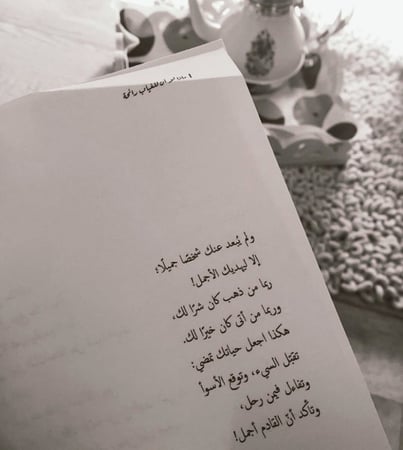 للغياب رائحة
ولم يُبعد عنك شخصًا جميلًا؛
إلا ليهديك الأجمل!
ربما من ذهب كان شرًا لك،
وربما من أتى كان خيرًا لك.
هكذا اجعل حياتك تمضي:
تقبّل السيء، وتوقع الأسوأ
وتفاءل فيمن رحل،
وتأكد أنّ القادم أجمل!